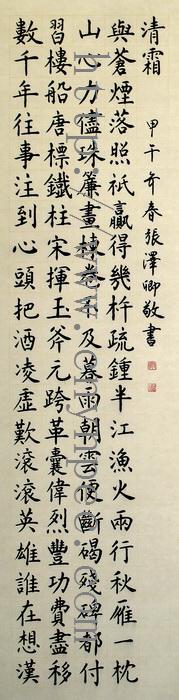 數千年往事注到心頭把酒凌虛歎滾滾英雄誰在想漢
習樓船唐標鐵柱宋揮玉斧元跨革囊偉烈豐功費盡移
山心力儘珠簾畫棟卷不及暮雨朝雲便斷碣殘碑都付
與蒼煙落照祇贏得幾杵疏鐘半江漁火兩行秋雁一枕
清霜
甲午年春張澤卿敬書